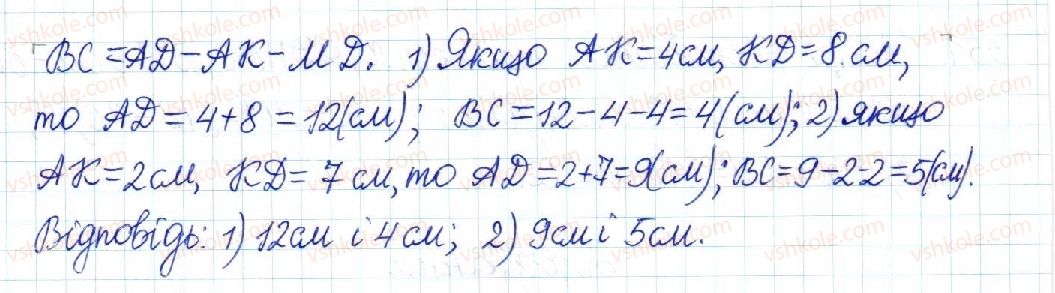 BC = AD - AK - MD. 1) Якщо AK = 4см, KD = 8 см,
то AD = 4 + 8 = 12(см); BC = 12 - 4 - 4 = 4(см); 2) якщо
AK = 2 см, KD = 7 см, то AD = 2 + 7 = 9(см); BC = 9 - 2 - 2 = 5(см).
Відповідь: 1) 12см і 4 см; 2) 9см і 5см.